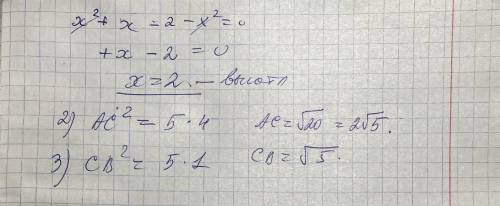 x² + x = 2 - x² = 0
+x - 2 = 0
x = 2. — высота
2) AC² = 5 · 4 AC = √20 = 2√5.
3) CB² = 5 · 1 CB = √5.